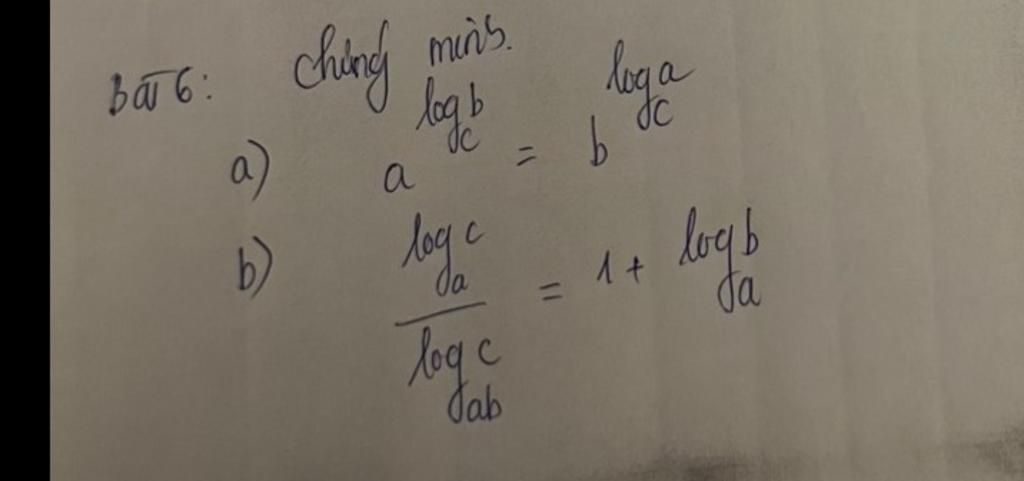 Bài 6: Chứng minh.
a) a^{log_c b} = b^{log_c a}
b) \frac{log_a c}{log_{ab} c} = 1 + log_a b